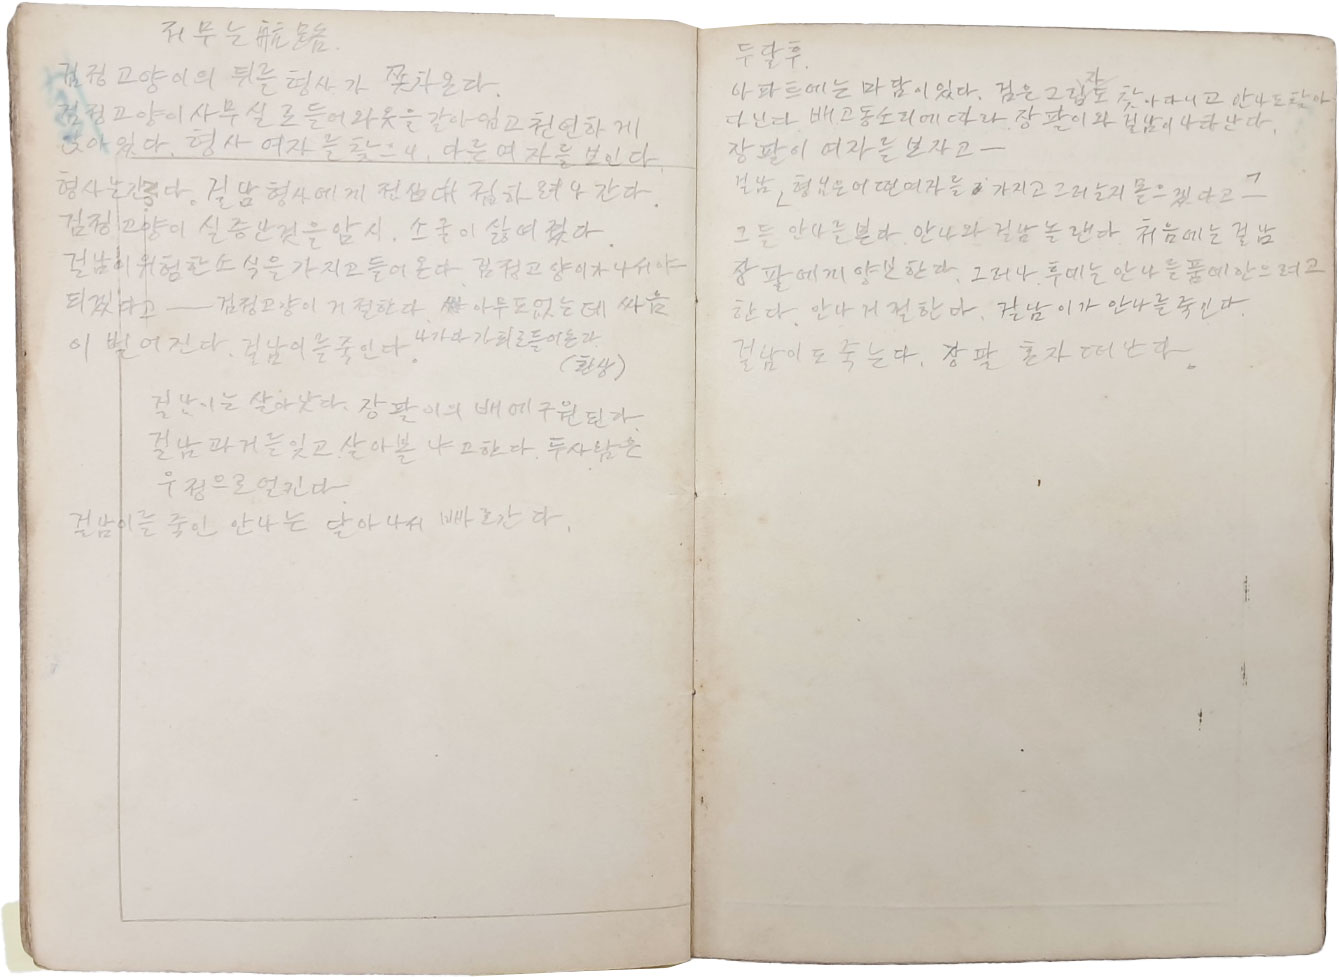 저무는
검정고양이의 뒤를 형사가 쫓차온다.
검정고양이 사무실로 들어와 옷을 갈아입고 천연하게
앉아있다. 형사 여자를 찾으나, 다른여자를 보인다.
형사는간다. 걸남 형사에게 전화 하려나 간다.
검정고양이 실증난것을 암시. 소굴이 싫여졌다.
걸남이 위험한소식을 가지고들어온다. 검정고양이가 나서야
되겠다고 — 검정고양이 거절한다. 아무도없는데 싸움
이 벌어진다. 걸남이를죽인다.
(환상)
걸남이는 살아낫다. 장팔이의 배에구원된다.
걸남 과거를잊고 살아볼냐고한다. 두사람은
우정으로얼킨다.
걸남이를 죽인 안나는 달아나서 빠로간다.
두달후.
아파트에는 마담이있다. 검은그림자도 찾아다니고 안나도찾아
다닌다. 배고동소리에따라 장팔이와 걸남이나타난다.
장팔이 여자를보자고—
걸남「형님은어떤여자를 가지고그러는지 몰으겠다고」—
그들 안나를본다. 안나와 걸남놀랜다. 처음에는 걸남
장팔에게 양보한다. 그러나, 후에는 안나를품에안으려고
한다. 안나거절한다. 걸남이가 안나를죽인다.
걸남이도 죽는다. 장팔 혼자 떠난다。